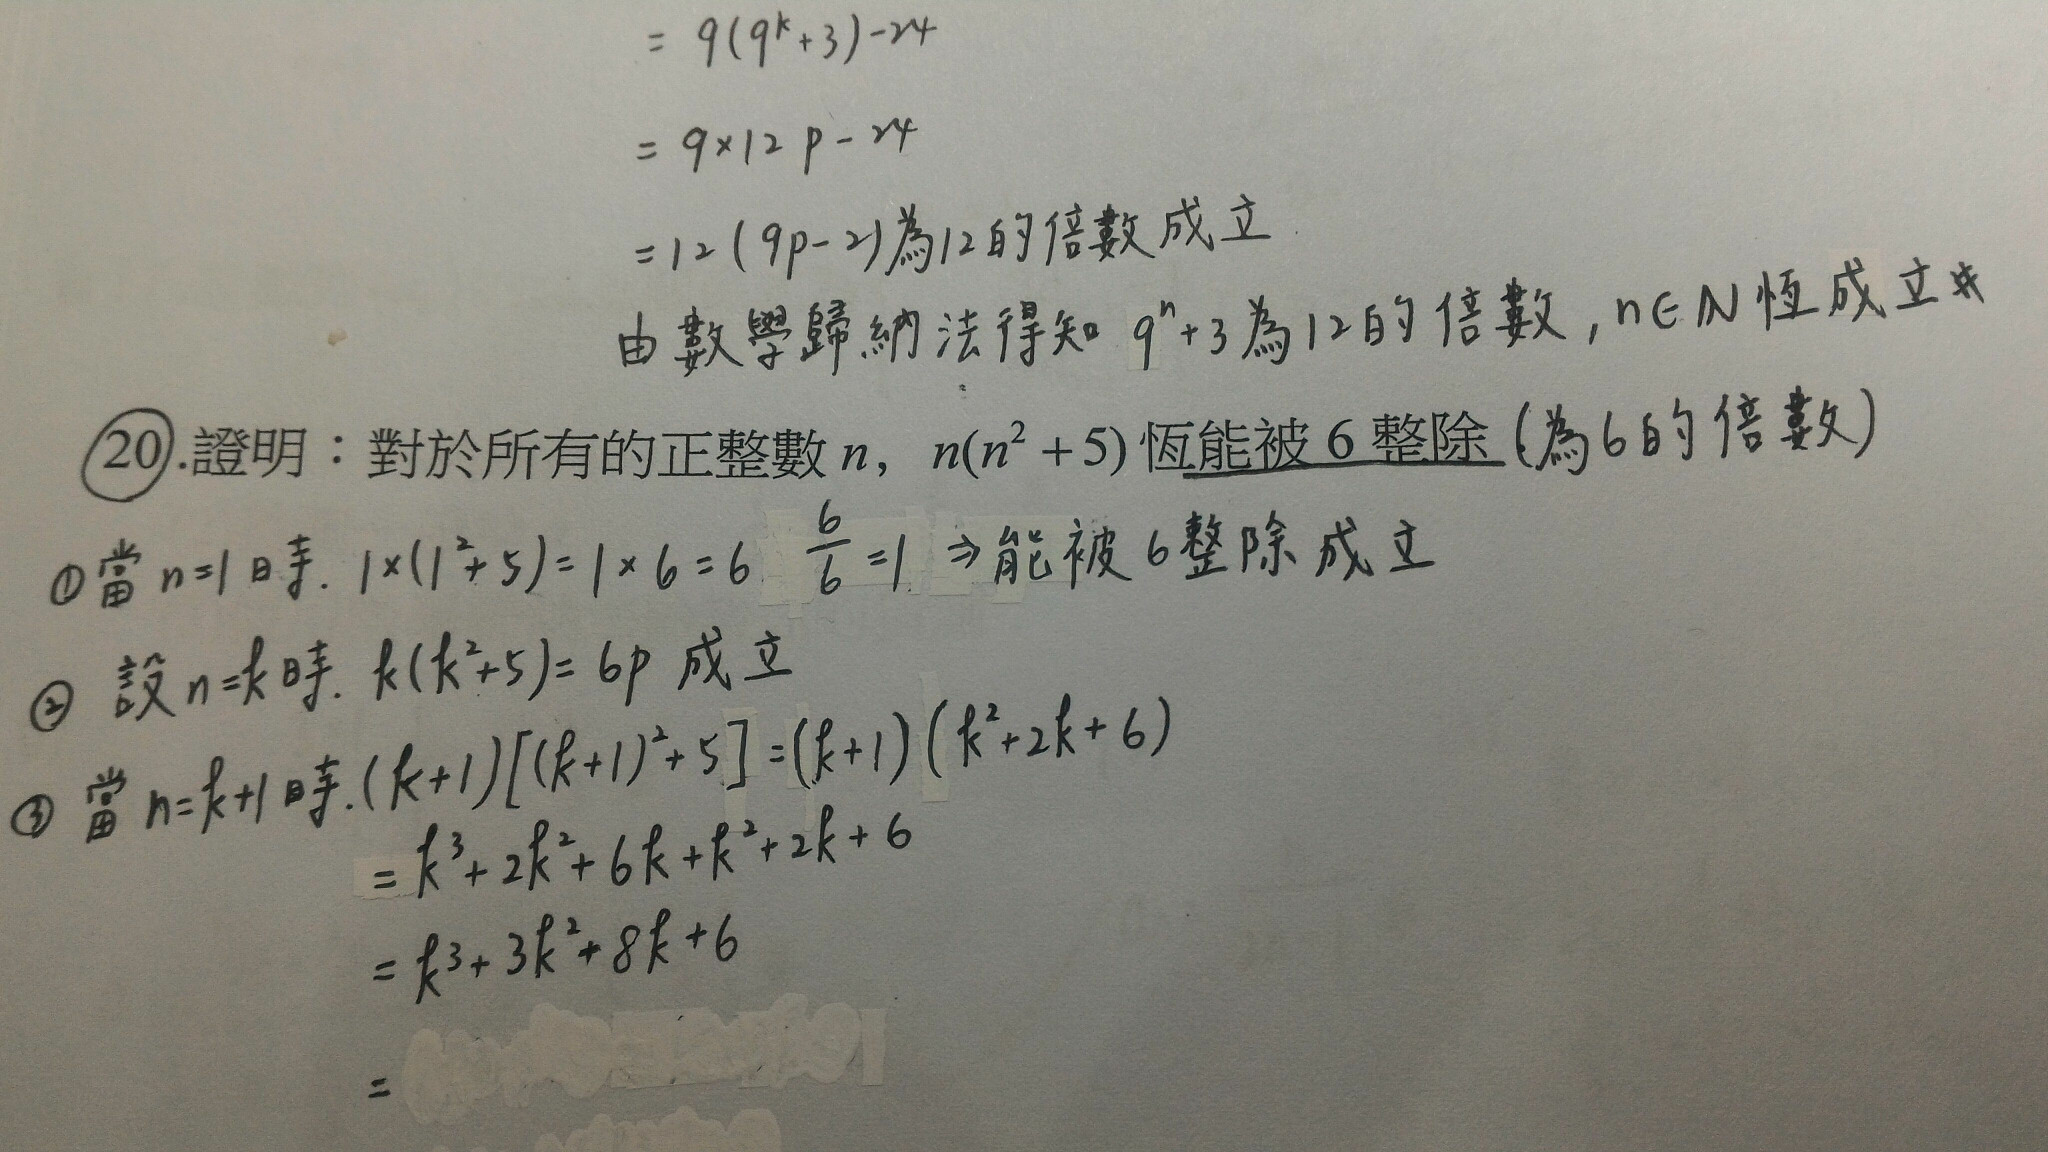 = 9(9ᵏ+3)-24
= 9×12p-24
=12(9p-2)為12的倍數成立
由數學歸納法得知 9ⁿ+3為12的倍數,n∈N恆成立※
20.證明：對於所有的正整數 n, n(n²+5) 恆能被 6 整除(為6的倍數)
①當n=1時. 1×(1²+5)=1×6=6 6/6=1 ⇒能被6整除成立
② 設n=k時. k(k²+5)=6p 成立
③ 當n=k+1時.(k+1)[(k+1)²+5]=(k+1)(k²+2k+6)
= k³+2k²+6k+k²+2k+6
= k³+3k²+8k+6
=